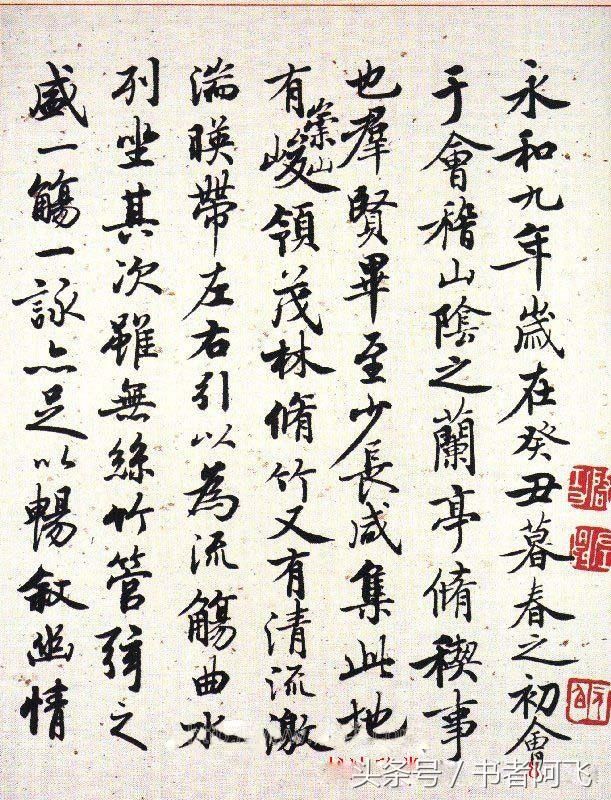 永和九年歲在癸丑暮春之初會
于會稽山陰之蘭亭脩稧事
也羣賢畢至少長咸集此地
有崇山峻領茂林脩竹又有清流激
湍暎帶左右引以為流觴曲水
列坐其次雖無絲竹管弦之
盛一觴一詠亦足以暢敘幽情
头条号/书者阿飞